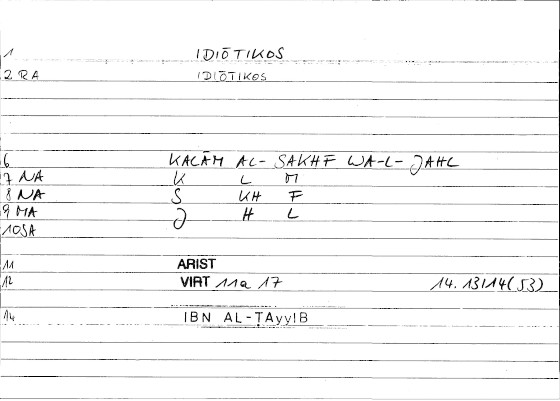 1 IDIŌTIKOS
2 RA IDIŌTIKOS
6 KALĀM AL- SAKHF WA-L- JAHL
7 NA K L M
8 NA S KH F
9 MA J H L
10SA
11 ARIST
12 VIRT 11a 17 14.13/14(53)
14 IBN AL-ṬAyyIB